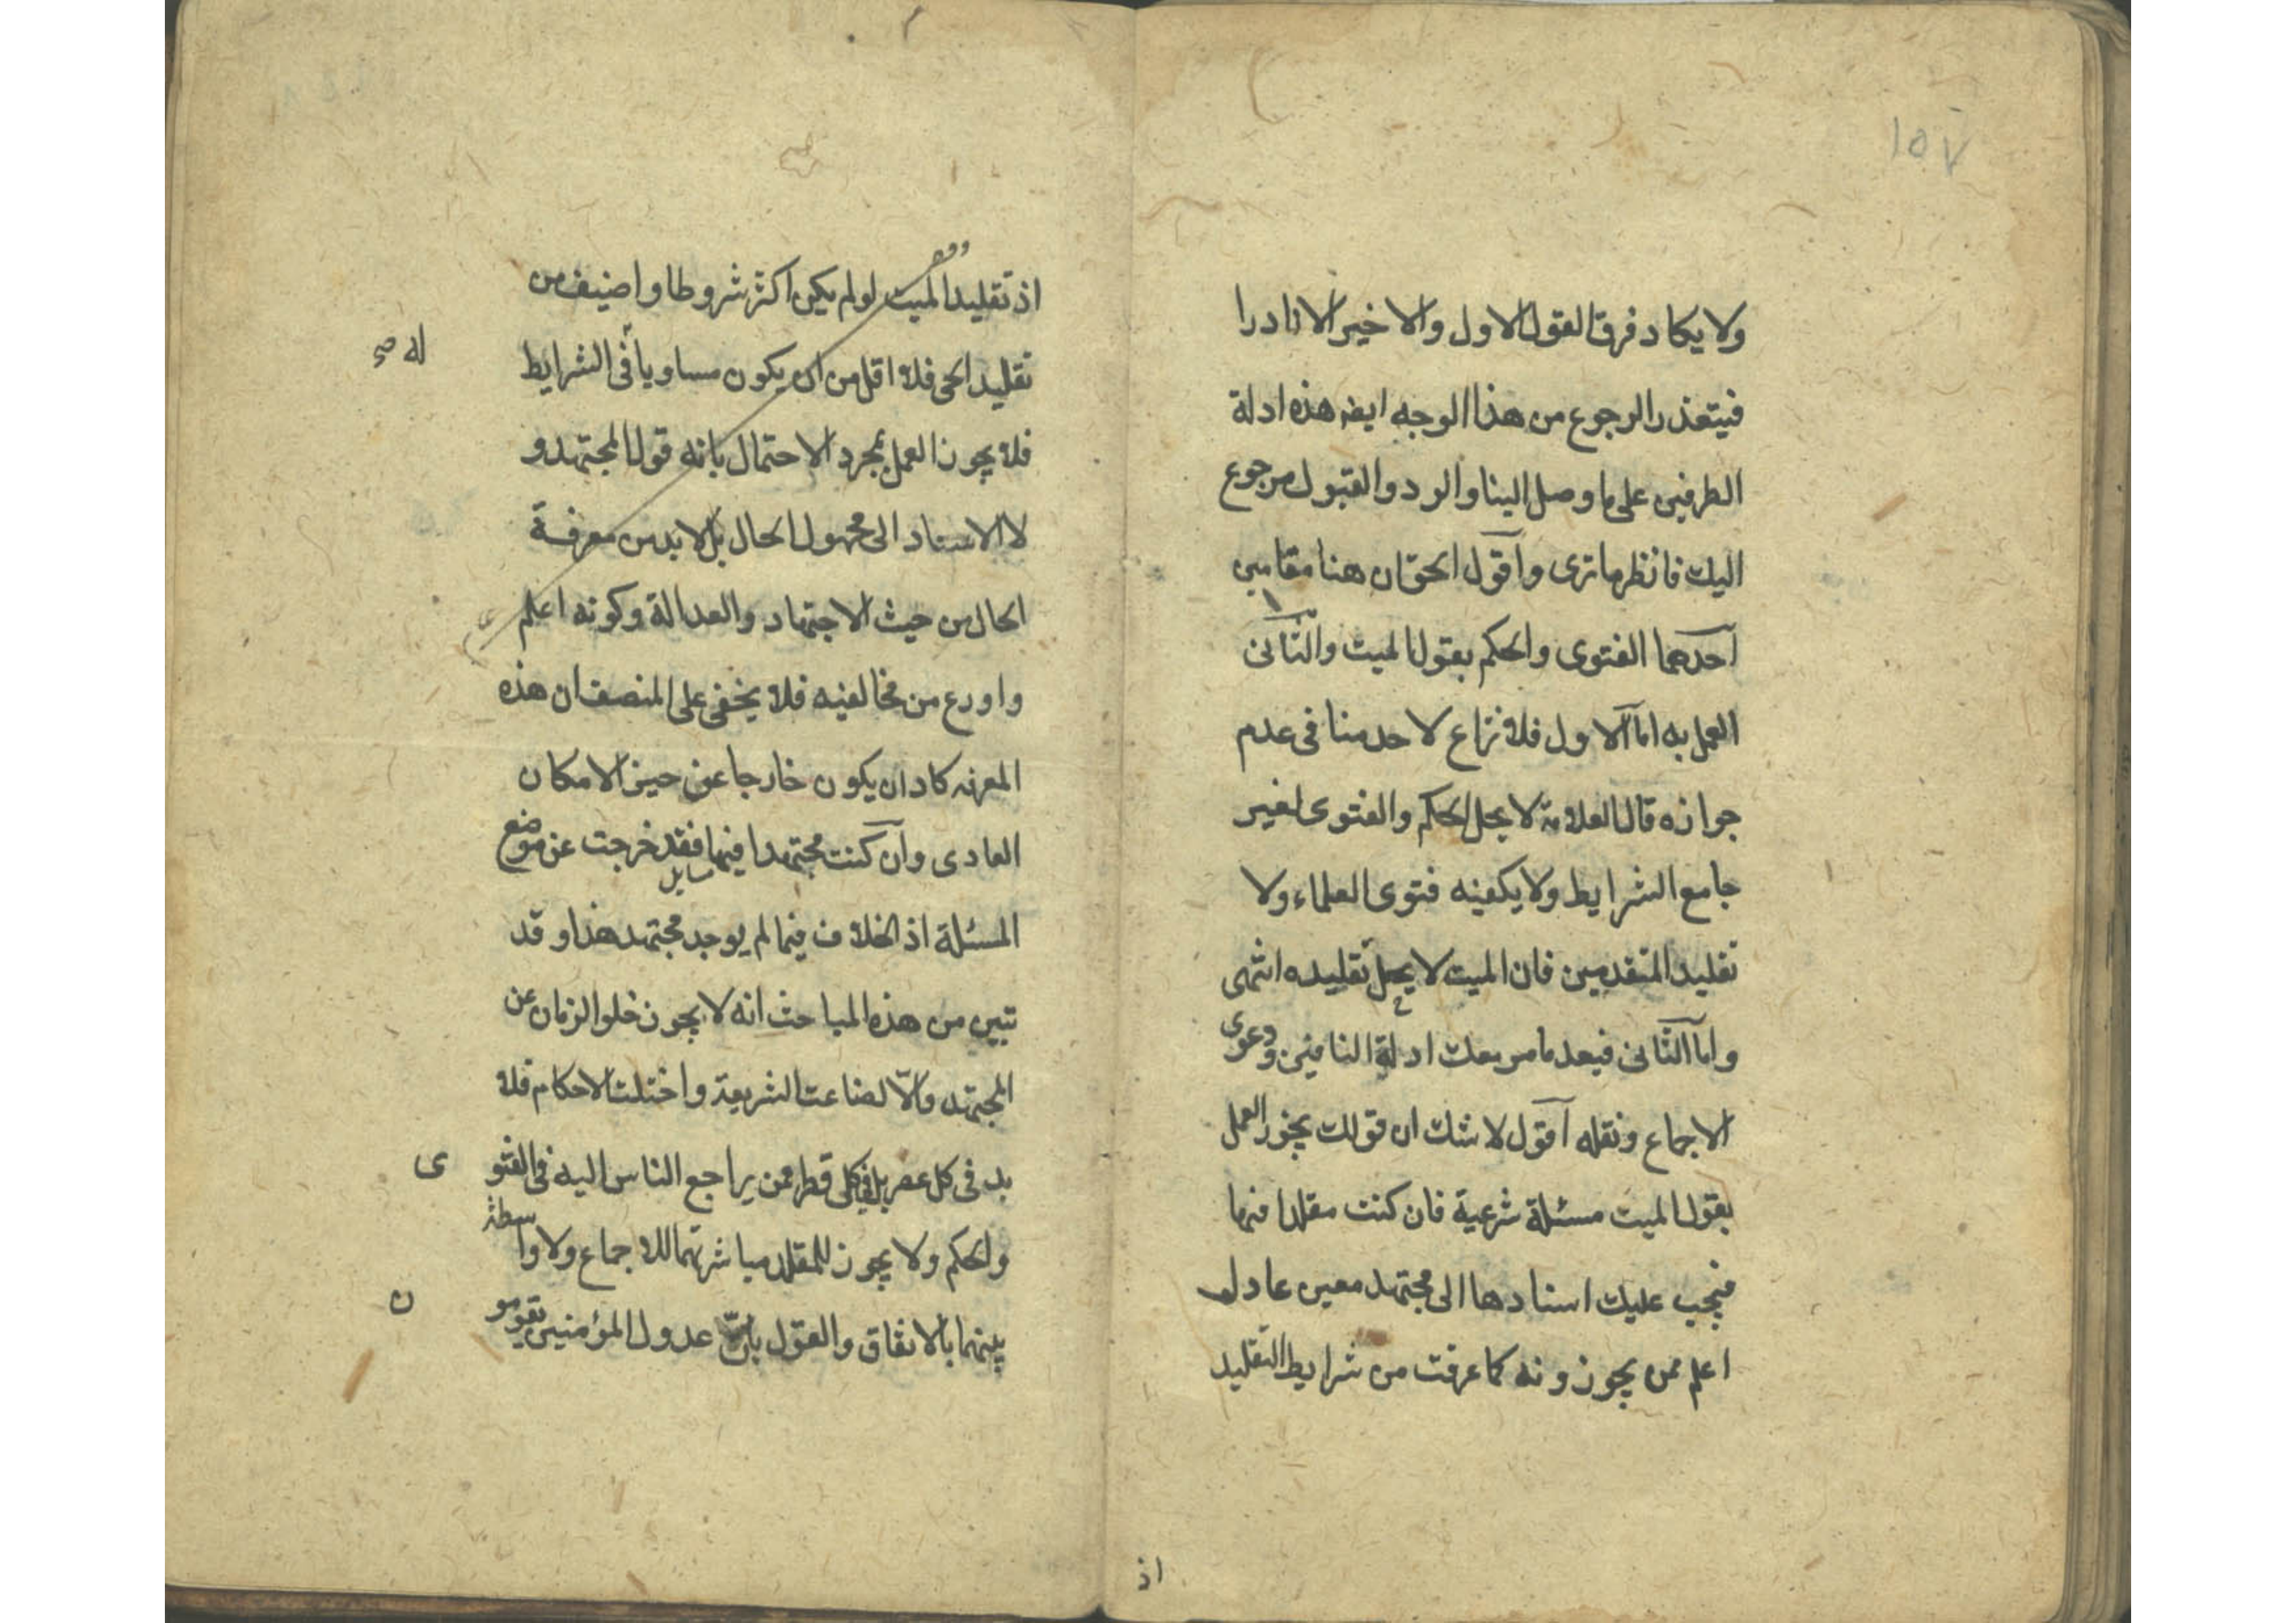 ١٥٧
ولا يكاد فرق القول الاول والاخير الا نادرا
فيتعذر الرجوع من هذا الوجه ايضه هذه ادلة
الطرفين على ما وصل الينا والرد والقبول مرجوع
اليك فانظر ما ترى واقول الحق ان هنا مقامين
احدهما الفتوى والحكم بقول الميت والثانى
العمل به اما الاول فلا نزاع لاحد منا فى عدم
جوازه قال العلامة لا يحل الحكم والفتوى لغير
جامع الشرايط ولا يكفيه فتوى العلماء ولا
تقليد المتقدمين فان الميت لا يحل تقليده انتهى
واما الثانى فبعد ما مر بعك ادلة النافين ودعوى
الاجماع ونقله اقول لا شك ان قولك يجوز العمل
بقول الميت مسئلة شرعية فان كنت مقلدا فيها
فيجب عليك اسنادها الى مجتهد معين عادل
اعلم ممن يجوزونه كما عرفت من شرايط التقليد
اذ
اذ تقليد الميت لو لم يكن اكثر شروطا واضيف من
تقليد الحى فلا اقل من ان يكون مساويا فى الشرايط
له صح
فلا يجوز العمل بمجرد الاحتمال بانه قول المجتهد و
لا الاسناد الى مجهول الحال بل لا بد من معرفة
الحال من حيث الاجتهاد والعدالة وكونه اعلم
واورع من مخالفيه فلا يخفى على المنصف ان هذه
المعرفه كاد ان يكون خارجا عن حيز الامكان
العادى وان كنت مجتهدا فيها فقد خرجت عن موضع
المسئلة اذ الخلاف فيما لم يوجد مجتهد هذا وقد
تبين من هذه المباحث انه لا يجوز خلو الزمان عن
المجتهد والا لضاعت الشريعة واختلت الاحكام فلا
بد فى كل عصر بل فى كل قطر ممن يراجع الناس اليه فى الفتو
ى
والحكم ولا يجوز للمقلد مباشرتهما للاجماع ولا واسطة
بينهما بالاتفاق والقول بان عدول المؤمنين يقومو
ن